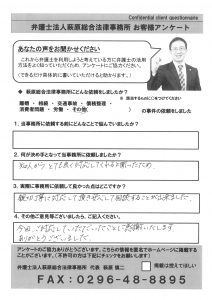 Confidential client questionnaire
弁護士法人萩原総合法律事務所 お客様アンケート
あなたの声をお聞かせください
これから弁護士を利用しようと考えている方に弁護士の活用
方法をより知っていただくため、アンケートにご協力ください。
(できるだけ具体的に書いていただけると助かります。)
◆ 萩原総合法律事務所にどんなことを依頼しましたか?
※該当するものに○をつけてください
離婚 ・ 相続 ・ 交通事故 ・ 債務整理 ・
消費者問題 ・ 労働 ・ その他( )の事件の依頼をしました
1. 当事務所に依頼する前にどんなことで悩んでいましたか?
2. 何が決め手となって当事務所に依頼しましたか?
知人から とても良く対応してくれると聞いたため
3. 実際に事務所に依頼して良かった点はどこですか?
親切丁寧に対応して頂き安心して相談することが出来ました。
4. その他ご意見等ございましたら、ご記入ください。
ありがとうございました。
アンケートのご協力ありがとうございます。こちらの情報を匿名でホームページに掲載する
ことがございます。(不許可の方は下記にチェックをお願いします)
弁護士法人萩原総合法律事務所 代表 萩原 慎二
□ 掲載は控えてほしい
FAX:0296-48-8895